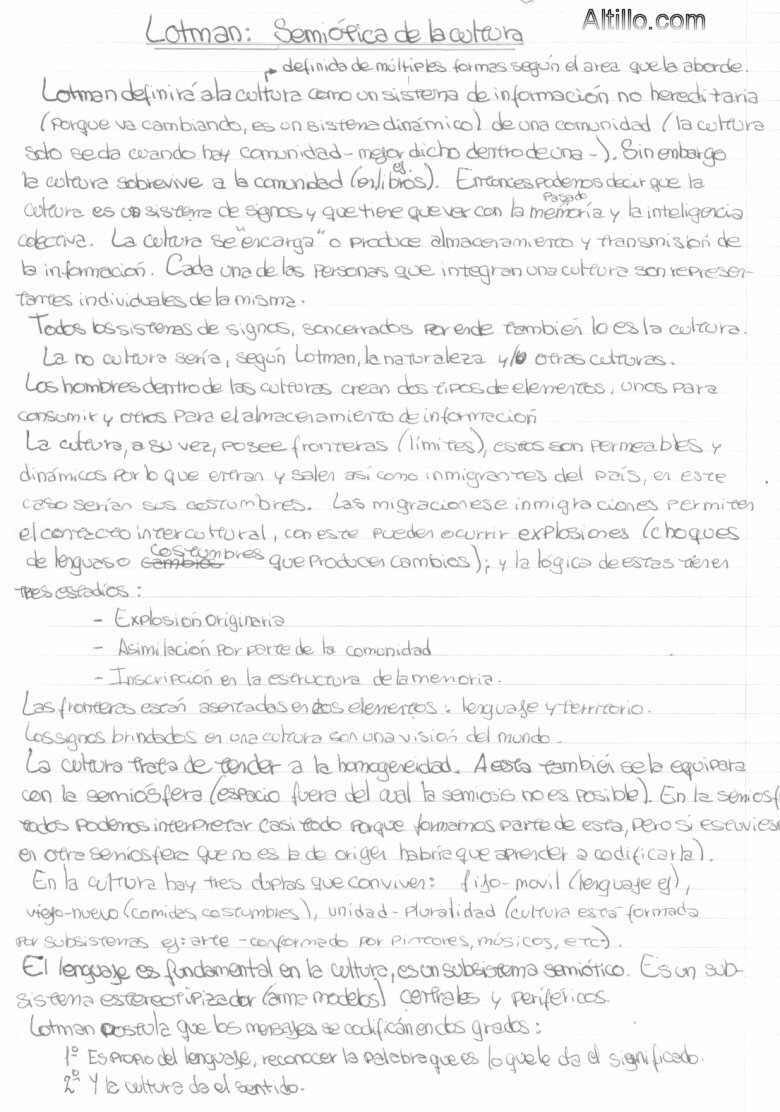 Altillo.com
Lotman: Semiótica de la cultura
definida de múltiples formas según el area que la aborde.
Lotman definirá a la cultura como un sistema de información no hereditaria
(porque va cambiando, es un sistema dinámico) de una comunidad (la cultura
solo se da cuando hay comunidad - mejor dicho dentro de una -). Sin enbargo
la cultura sobrevive a la comunidad (ej en libros). Entonces podemos decir que la
cultura es un sistema de signos y que tiene que ver con la memoria pasado y la inteligencia
colectiva. La cultura se "encarga" o produce almacenamiento y transmisión de
la información. Cada una de las personas que integran una cultura son represen-
tantes individuales de la misma.
Todos los sistemas de signos, son cerrados por ende también lo es la cultura.
La no cultura sería, según Lotman, la naturaleza y/o otras culturas.
Los hombres dentro de las culturas crean dos tipos de elementos, unos para
consumir y otros para el almacenamiento de información
La cultura, a su vez, posee fronteras (límites), estos son permeables y
dinámicos por lo que entran y salen asi como inmigrantes del país, en este
caso serían sus costumbres. Las migraciones e inmigraciones permiten
el contacto intercultural, con este pueden ocurrir explosiones (choques
de lenguas o cambios costumbres que producen cambios); y la lógica de estas tienen
tres estadios:
- Explosión originaria
- Asimilación por parte de la comunidad
- Inscripción en la estructura de la memoria.
Las fronteras están asentadas en dos elementos: lenguaje y territorio.
Los signos brindados en una cultura son una visión del mundo.
La cultura trata de tender a la homogeneidad. A esta también se la equipara
con la semiósfera (espacio fuera del cual la semiosis no es posible). En la semiosf
todos podemos interpretar casi todo porque formamos parte de esta, pero si estuvies
en otra semiosfera que no es la de origen habría que aprender a codificarla).
En la cultura hay tres duplas que conviven: fijo-movil (lenguaje ej),
viejo-nuevo (comidas, costumbres), unidad-pluralidad (cultura está formada
por subsistemas ej: arte - conformado por pintores, músicos, etc).
El lenguaje es fundamental en la cultura, es un subsistema semiótico. Es un sub-
sistema estereotipizador (arma modelos) centrales y periféricos.
Lotman postula que los mensajes se codifican en dos grados:
1º Es propio del lenguaje, reconocer la palabra que es lo que le da el significado.
2º Y la cultura da el sentido.